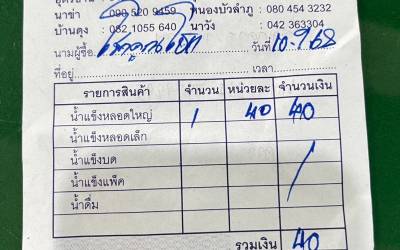 นาข่า : 090 520 9459 หนองบัวลำภู : 080 454 3232
บ้านดุง : 082 1055 640 นาวัง : 042 363304
นามผู้ซื้อ วันที่ 10-9-68
ที่อยู่ เวลา
รายการสินค้า จำนวน หน่วยละ จำนวนเงิน
น้ำแข็งหลอดใหญ่ 1 40 40
น้ำแข็งหลอดเล็ก
น้ำแข็งบด
น้ำแข็งแพ็ค
น้ำดื่ม
รวมเงิน 40